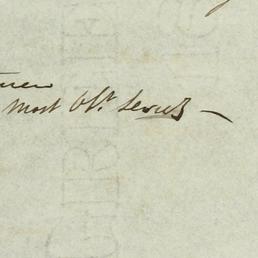 most Obt. Servts —